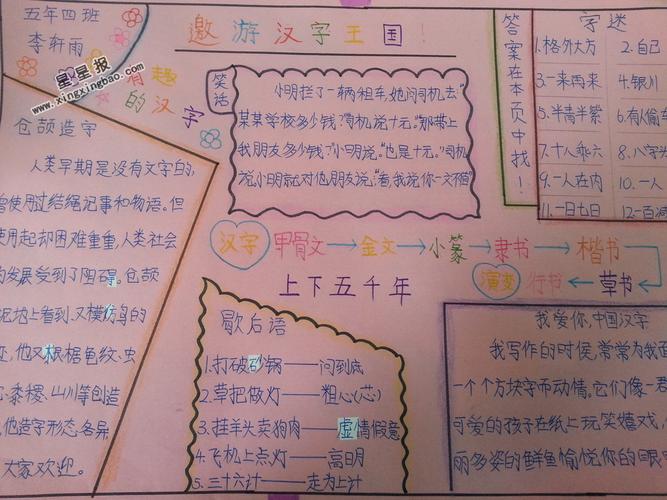 五年四班
李轩雨
星星报
www.xingxingbao.com
有趣
的汉字
邀游汉字王国!
仓颉造字
人类早期是没有文字的,
曾使用过结绳记事和物语。但
使用起却困难重重,人类社会
的发展受到了阻碍。仓颉
泥地上看到、又模仿鸟的
迹,他又根据龟纹、虫
、黍稷、山川等创造
他造字形态各异
大家欢迎。
笑话
小明拦了一辆租车,她问司机去“
某某学校多少钱?司机说十元。“那带上
我朋友多少钱?”小明说。“也是十元。”司机
说,小明就对他朋友说,“看,我说你一文不值”
答案在本页中找!
字迷
1.格外大方
2.自己
3.一来再来
4.银川
5.半青半紫
6.有人偷车
7.十人乘六
8.八字头
9.一人在内
10.一人
11.一日七日
12.百减
汉字 甲骨文→金文→小篆→隶书→楷书
演变 行书←草书
上下五千年
歇后语
1.打破砂锅——问到底
2.草把做灯——粗心(芯)
3.挂羊头卖狗肉——虚情假意
4.飞机上点灯——高明
5.三十六计——走为上计
我爱你,中国汉字
我写作的时侯,常常为我面
一个个方块字而动情。它们像一
可爱的孩子在纸上玩笑嬉戏,
丽多姿的鲜鱼愉悦你的眼